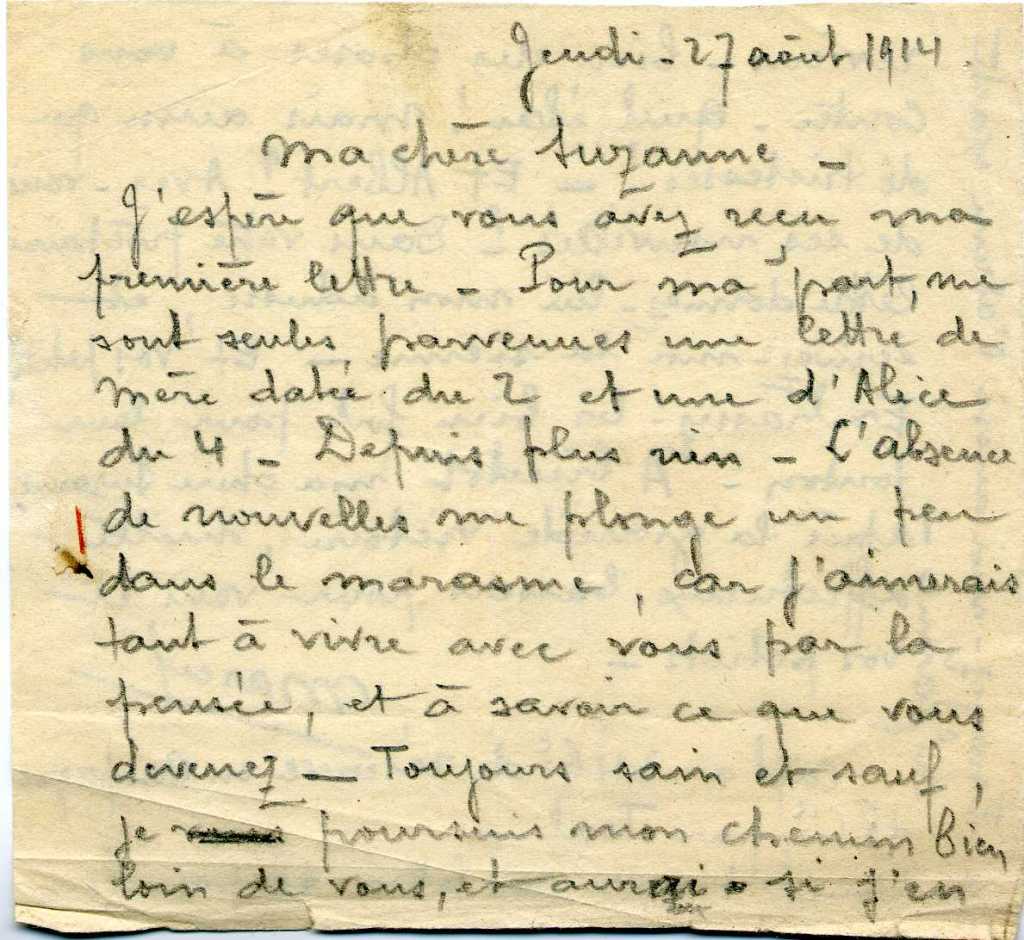 Jeudi - 27 août 1914.
Ma chère Suzanne -
J'espère que vous avez reçu ma
première lettre - Pour ma part, me
sont seules parvenues une lettre de
mère datée du 2 et une d'Alice
du 4 - Depuis plus rien - L'absence
de nouvelles me plonge un peu
dans le marasme, car j'aimerais
tant à vivre avec vous par la
pensée, et à savoir ce que vous
devenez - Toujours sain et sauf,
je poursuis mon chemin bien
loin de vous, et aurai si j'en